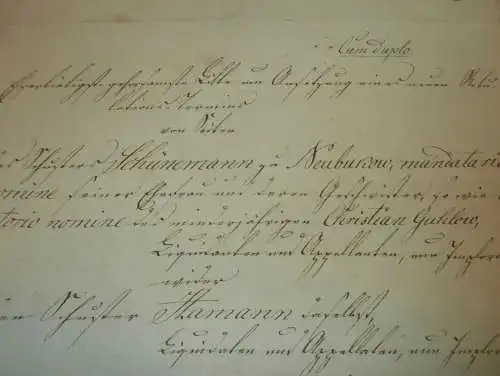 Cum duplo.
Ehrerbietigst gehorsamste Bitte um Ansetzung eines neuen Rotu-
lations-Termins
von Seiten
des Schusters Schünemann zu Neubukow, mandatario
nomine seiner Ehefrau und deren Geschwister, so wie
torio nomine des minderjährigen Christian Gutzlow,
Liquidaten und Appellanten, nun Implor
wider
den Schuster Hamann daselbst,
Liquidaten und Appellaten, nun Implor